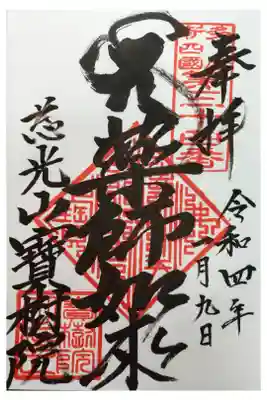 奉拝
令和四年
一月九日
薬師如来
慈光山寳樹院